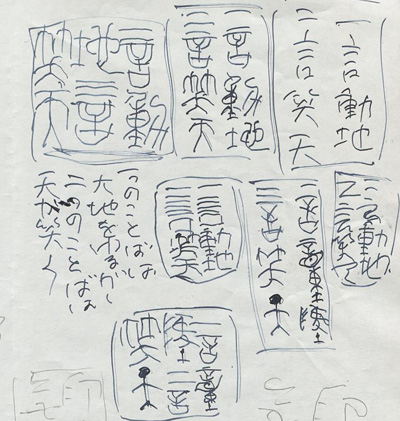 一言動地
二言笑天
一言動地
二言笑天
一言動
地二言
笑天
一言動地
二言笑天
一言動地
二言笑天
一言動地
二言笑天
一つのことばは
大地をゆるがし
二つのことばは
天が笑く
一言動
地二言
笑天